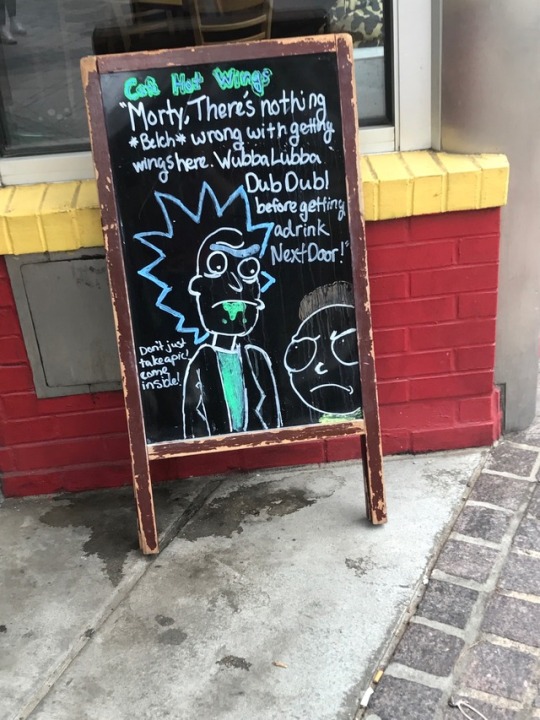 Hot Wings
"Morty, There's nothing
*Belch* wrong with getting
wings here. Wubba Lubba
Dub Dub!
before getting
a drink
Next Door!"
Don't just
take a pic!
come
inside!